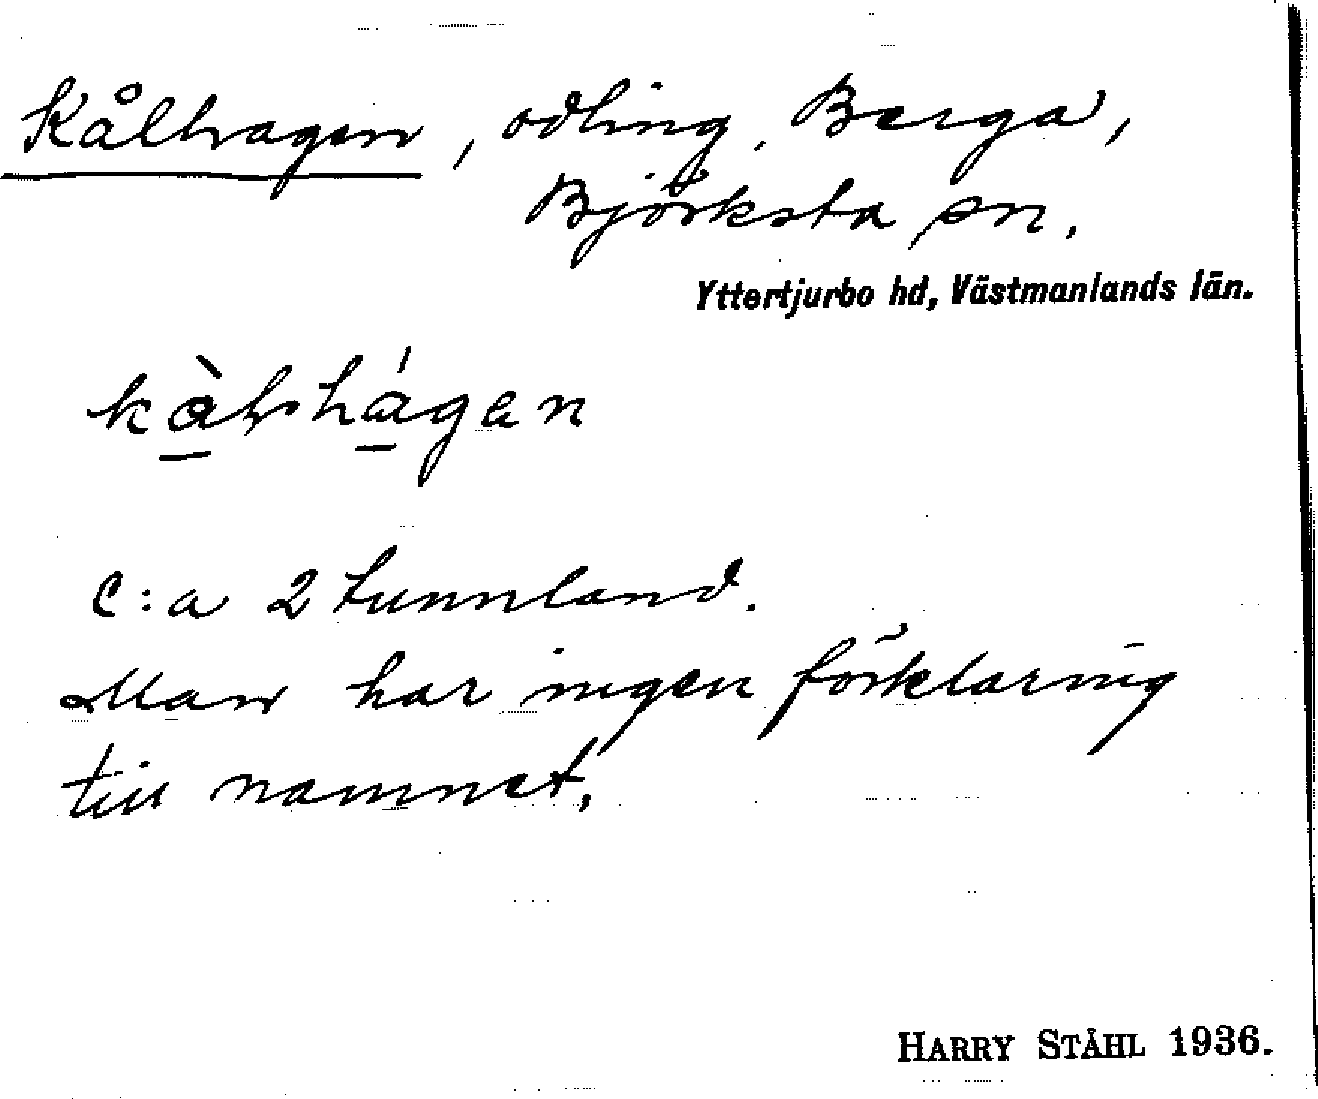 Kålhagen, odling, Berga,
Björksta sn.
Yttertjurbo hd, Västmanlands län.
kàlhágen
C:a 2 tunnland.
Man har ingen förklaring
till namnet.
HARRY STÅHL 1936.